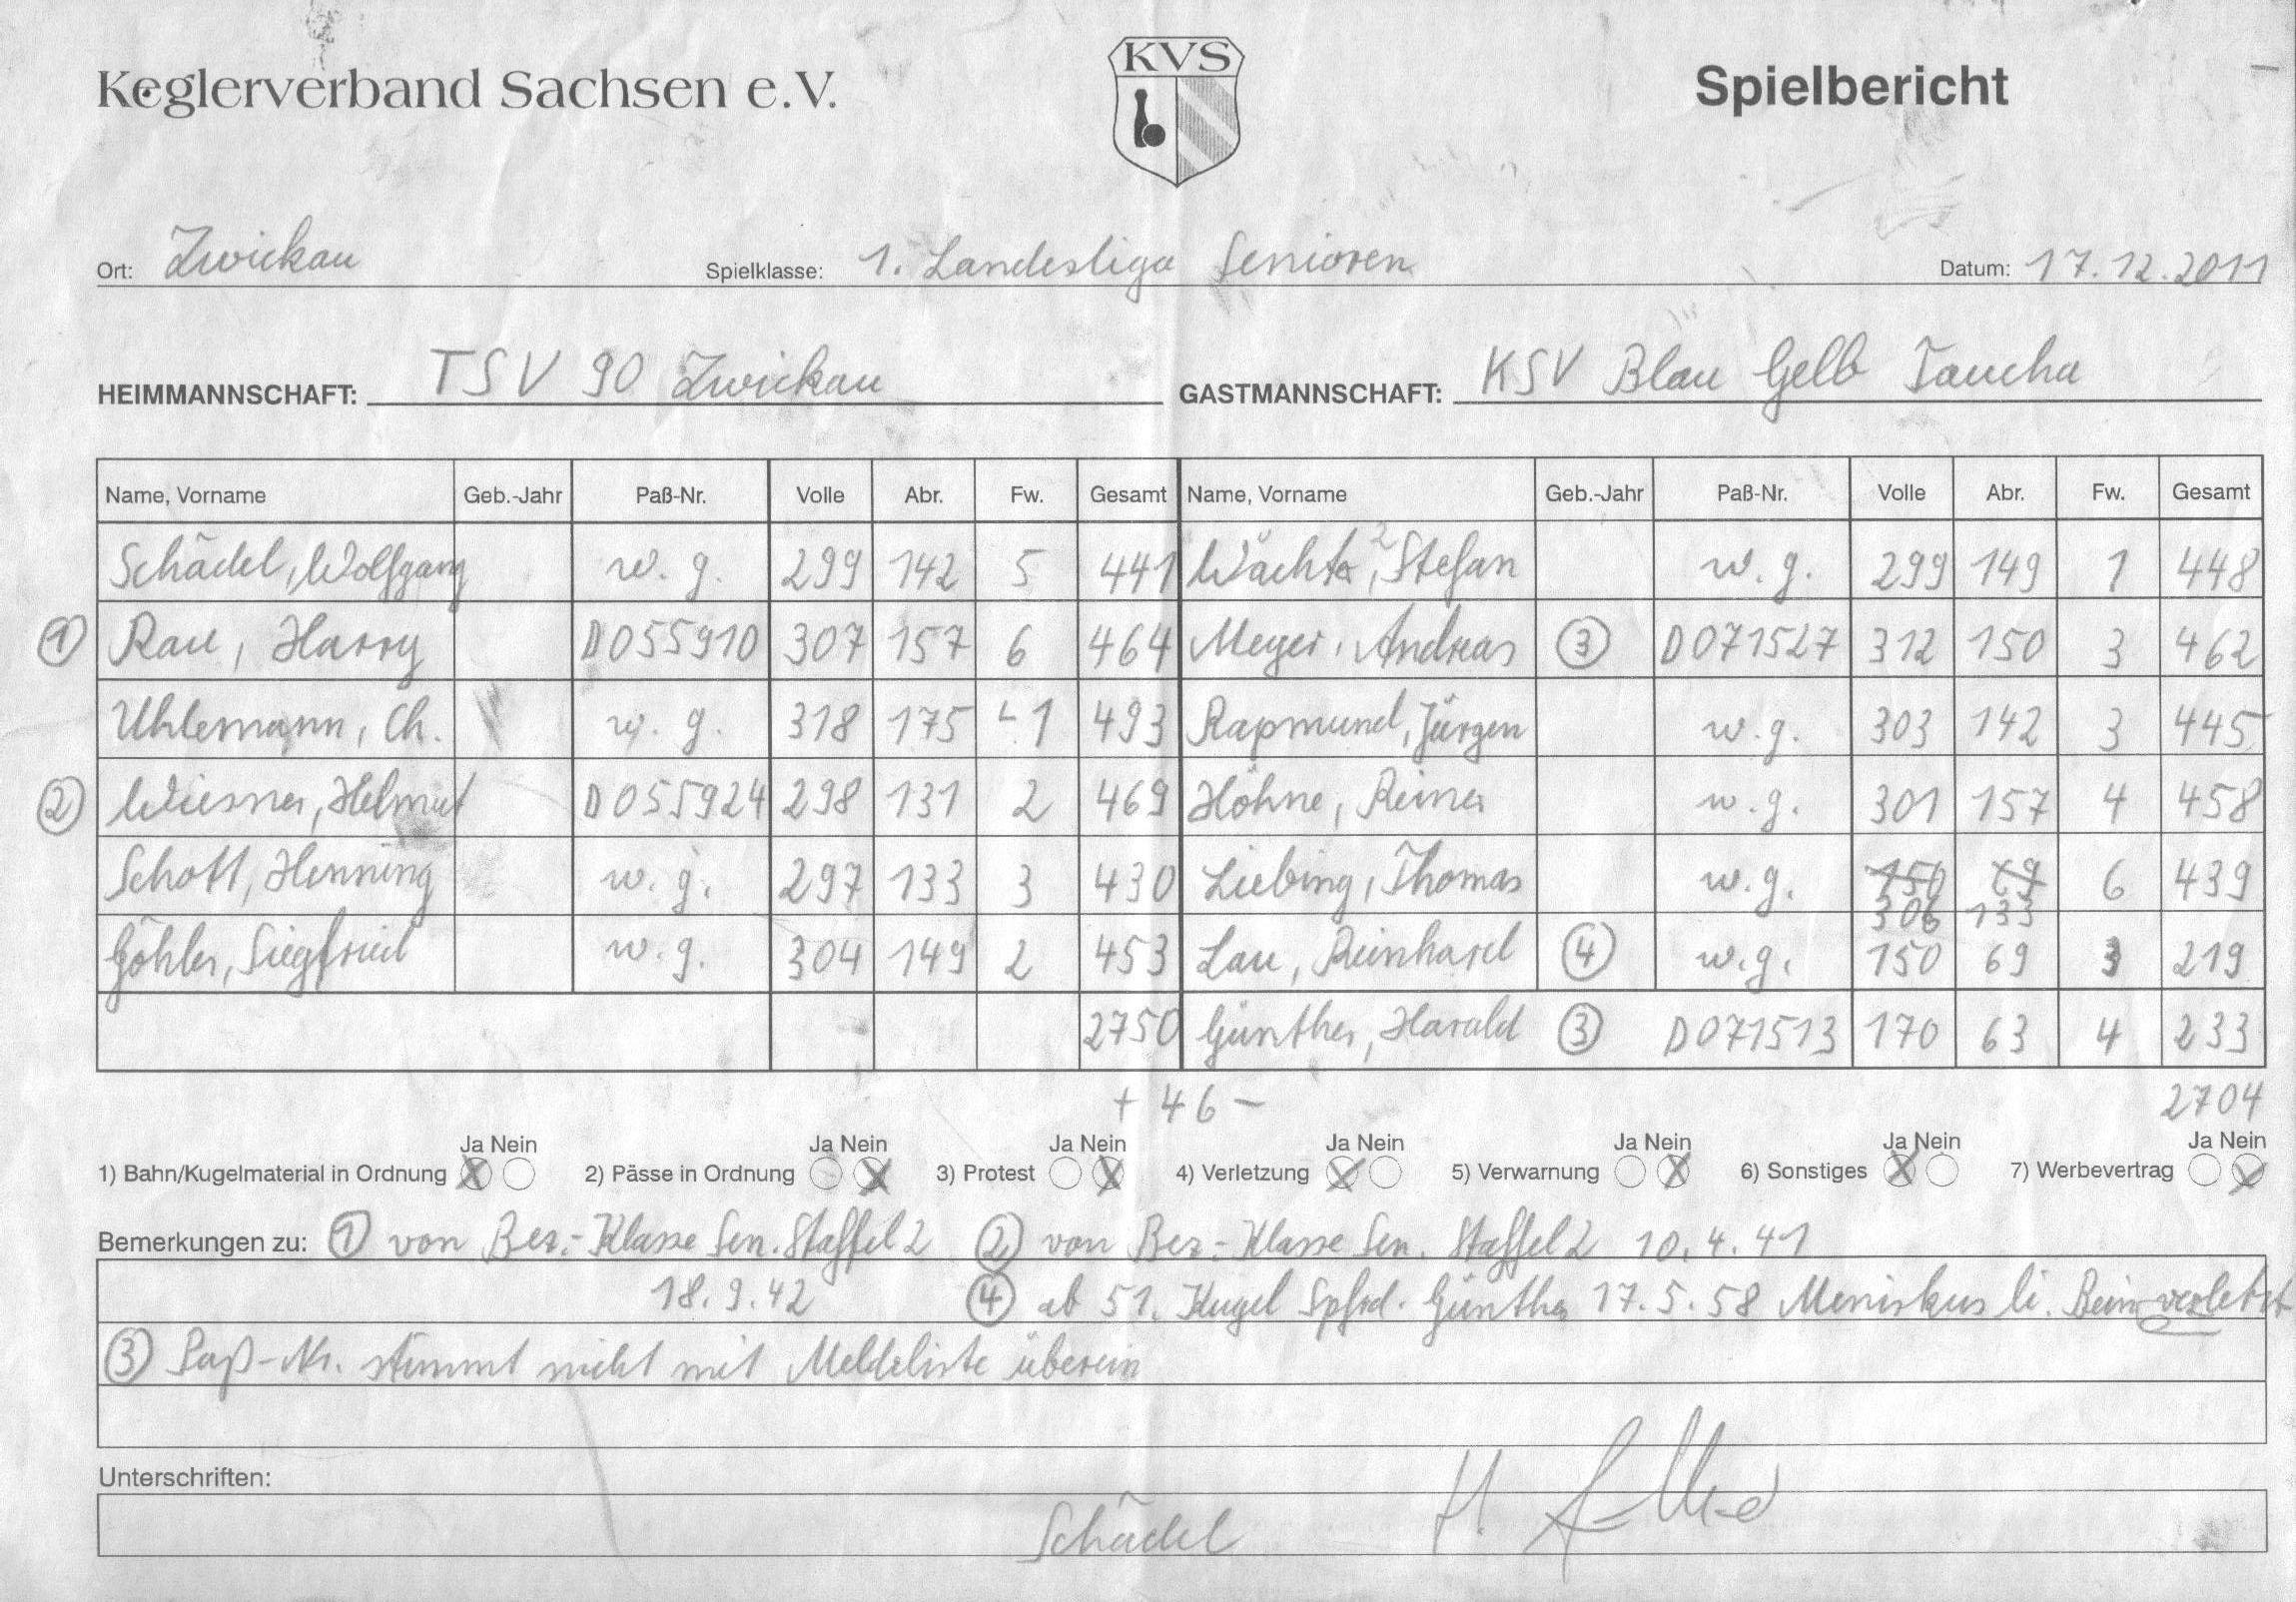 Keglerverband Sachsen e.V.
KVS
Spielbericht
Ort: Zwickau Spielklasse: 1. Landesliga Senioren Datum: 17.12.2011
HEIMMANNSCHAFT: TSV 90 Zwickau GASTMANNSCHAFT: KSV Blau Gelb Taucha
Name, Vorname Geb.-Jahr Paß-Nr. Volle Abr. Fw. Gesamt Name, Vorname Geb.-Jahr Paß-Nr. Volle Abr. Fw. Gesamt
Schädel, Wolfgang w. g. 299 142 5 441 Stefan w. g. 299 149 1 448
① Rau, Harry D055910 307 157 6 464 Meyer, Andreas ③ D071527 312 150 3 462
Uhlemann, Ch. w. g. 318 175 1 493 Rapmund, Jürgen w.g. 303 142 3 445
② Wiesner, Helmut D055924 298 131 2 469 Höhne, Reiner w.g. 301 157 4 458
Schott, Henning w. g. 297 133 3 430 Liebing, Thomas w.g. 150 69 6 439
306 133
Göhler, Siegfried w.g. 304 149 2 453 Lau, Reinhard ④ w.g. 150 69 3 219
2750 Günther, Harald ③ D071513 170 63 4 233
+ 46 – 2704
Ja Nein Ja Nein Ja Nein Ja Nein Ja Nein Ja Nein Ja Nein
1) Bahn/Kugelmaterial in Ordnung 2) Pässe in Ordnung 3) Protest 4) Verletzung 5) Verwarnung 6) Sonstiges 7) Werbevertrag
Bemerkungen zu: ① von Bez.-Klasse Sen. Staffel 2 ② von Bez.-Klasse Sen. Staffel 2 10.4.41
18.9.42 ④ ab 51. Kugel Spfrd. Günther 17.5.58 Meniskus li. Bein verletzt
③ Paß-Nr. stimmt nicht mit Meldeliste überein
Unterschriften:
Schädel